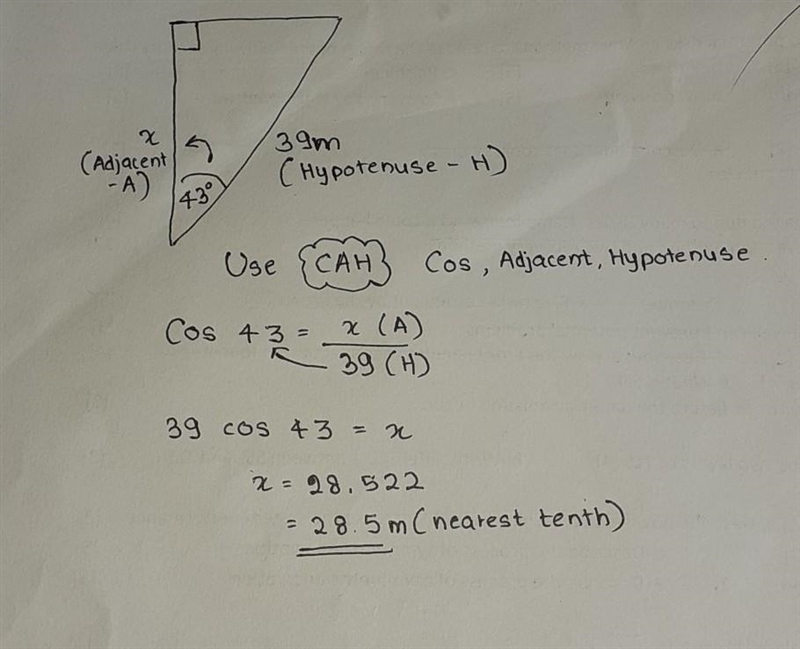 x
(Adjacent
-A)
43°
39m
(Hypotenuse - H)
Use CAH Cos, Adjacent, Hypotenuse.
Cos 43 = x (A)
39 (H)
39 cos 43 = x
x = 28.522
= 28.5m (nearest tenth)